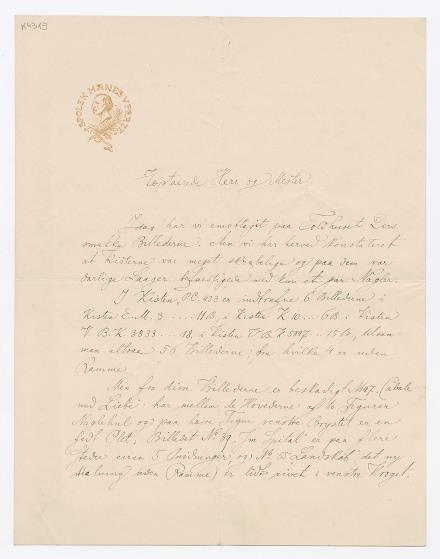 K4319
SPOLEK MANES V PRAZE
Høistærede Herr og Mester
Idag har vi emottagit paa Toldhuset Deres
smukke Billederne. Men vi har herved konstateret
at Kisterne var meget skrøbelige og paa dem var
darlige Laager befæstigede med kun et par Nagler.
I Kisten P.C. 423 er indtrofne 6 Billederne i
Kisten E. M. 3 .... 11 B, i Kisten K 10 ... 6 B i Kisten
V. B. K 3833 .... 18, i Kisten V. B. K 5997 .. 15 B,
man altsaa 56 Billederne, fra hvilke 4 er uden
Ramme.
Men fra disse Billederne er beskadigt No 97. "Cabale
und Liebe": har mellem de Hovederne af to Figurer
og paa hans Figur venstre Brystet er en
fedt Plet, Billedet No 39. "Im Spital" er paa flere
Steder circa 5 og No 55 "Landskab" det ny
Malning uden (Ramme) er lidt rivet i venstre Kroget.